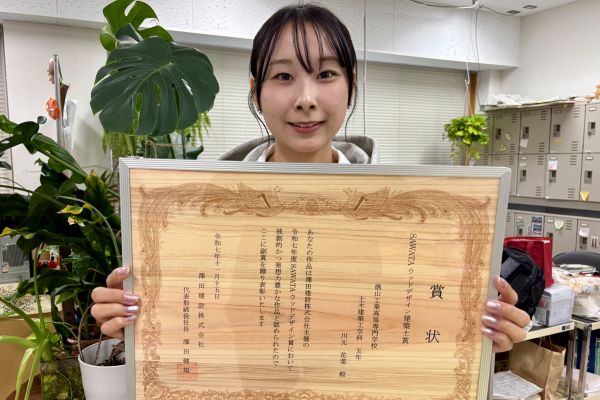 賞状
SAWATAウッドデザイン建築士賞
徳山工業高等専門学校
土木建築工学科 五年
川元 花菜 殿
あなたの作品は澤田建設株式会社主催の
令和七年度SAWATAウッドデザイン賞において
独創的かつ発想力豊かな作品と認められたので
ここに副賞を贈り表彰いたします
令和七年十一月十五日
澤田建設株式会社
代表取締役社長 澤田 健規